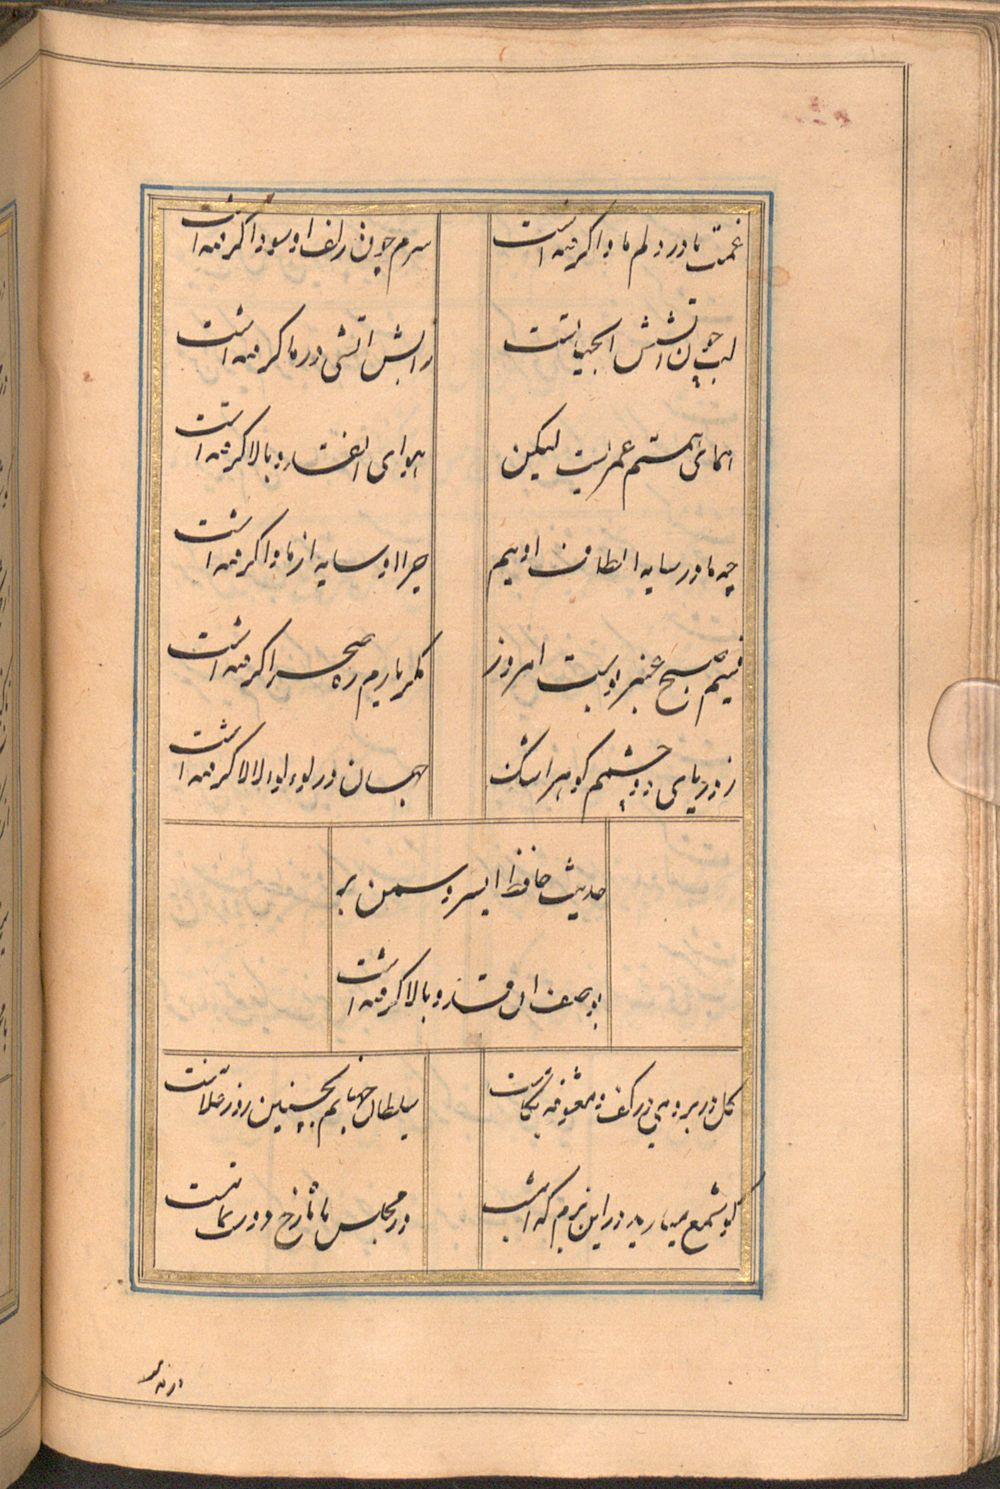 غمت تا در دلم ماوا کرفته است
سرم چون زلف او سودا کرفته است
لب چون اتشش اب حیاتست
زابش اتشی در ما کرفته است
همای همتم عمریست لیکن
هوای ان قد و بالا کرفته است
چو ما در سایه الطاف اوییم
چرا او سایه از ما وا کرفته است
نسیم صبح عنبر بوست امروز
مکر یارم ره صحرا کرفته است
ز دریای دو چشمم کوهر اشک
جهان در لوء لوء لالا کرفته است
حدیث حافظ ای سرو سمن بر
بوصف ان قد و بالا کرفته است
کل در بر و می در کف و معشوقه بکامست
سلطان جهانم بچنین روز غلامست
کو شمع میارید در این بزم که امشب
در مجلس ما ماه رخ دوست تمامست